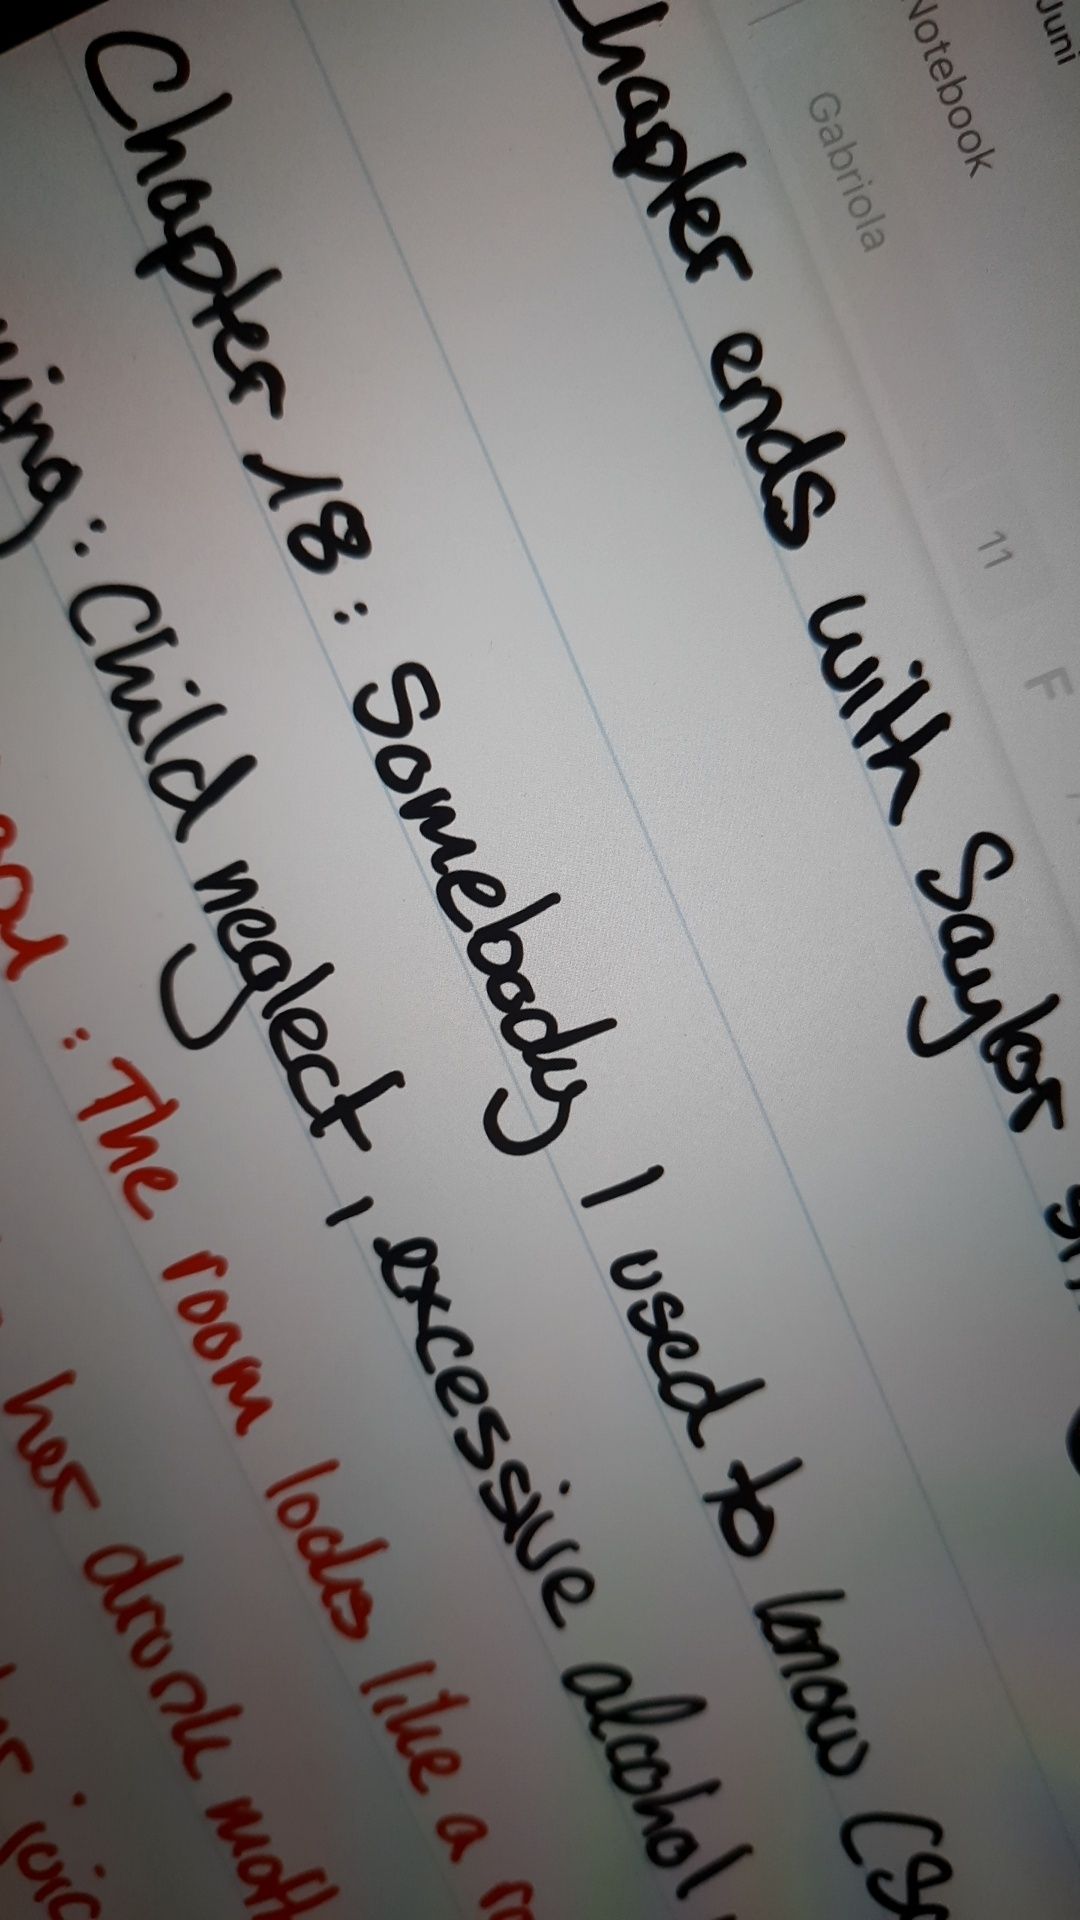 Juni
Notebook
Gabriola 11 F
chapter ends with Saylor
Chapter 18: Somebody I used to know
: Child neglect, excessive alcohol
: The room looks like a
her drunk